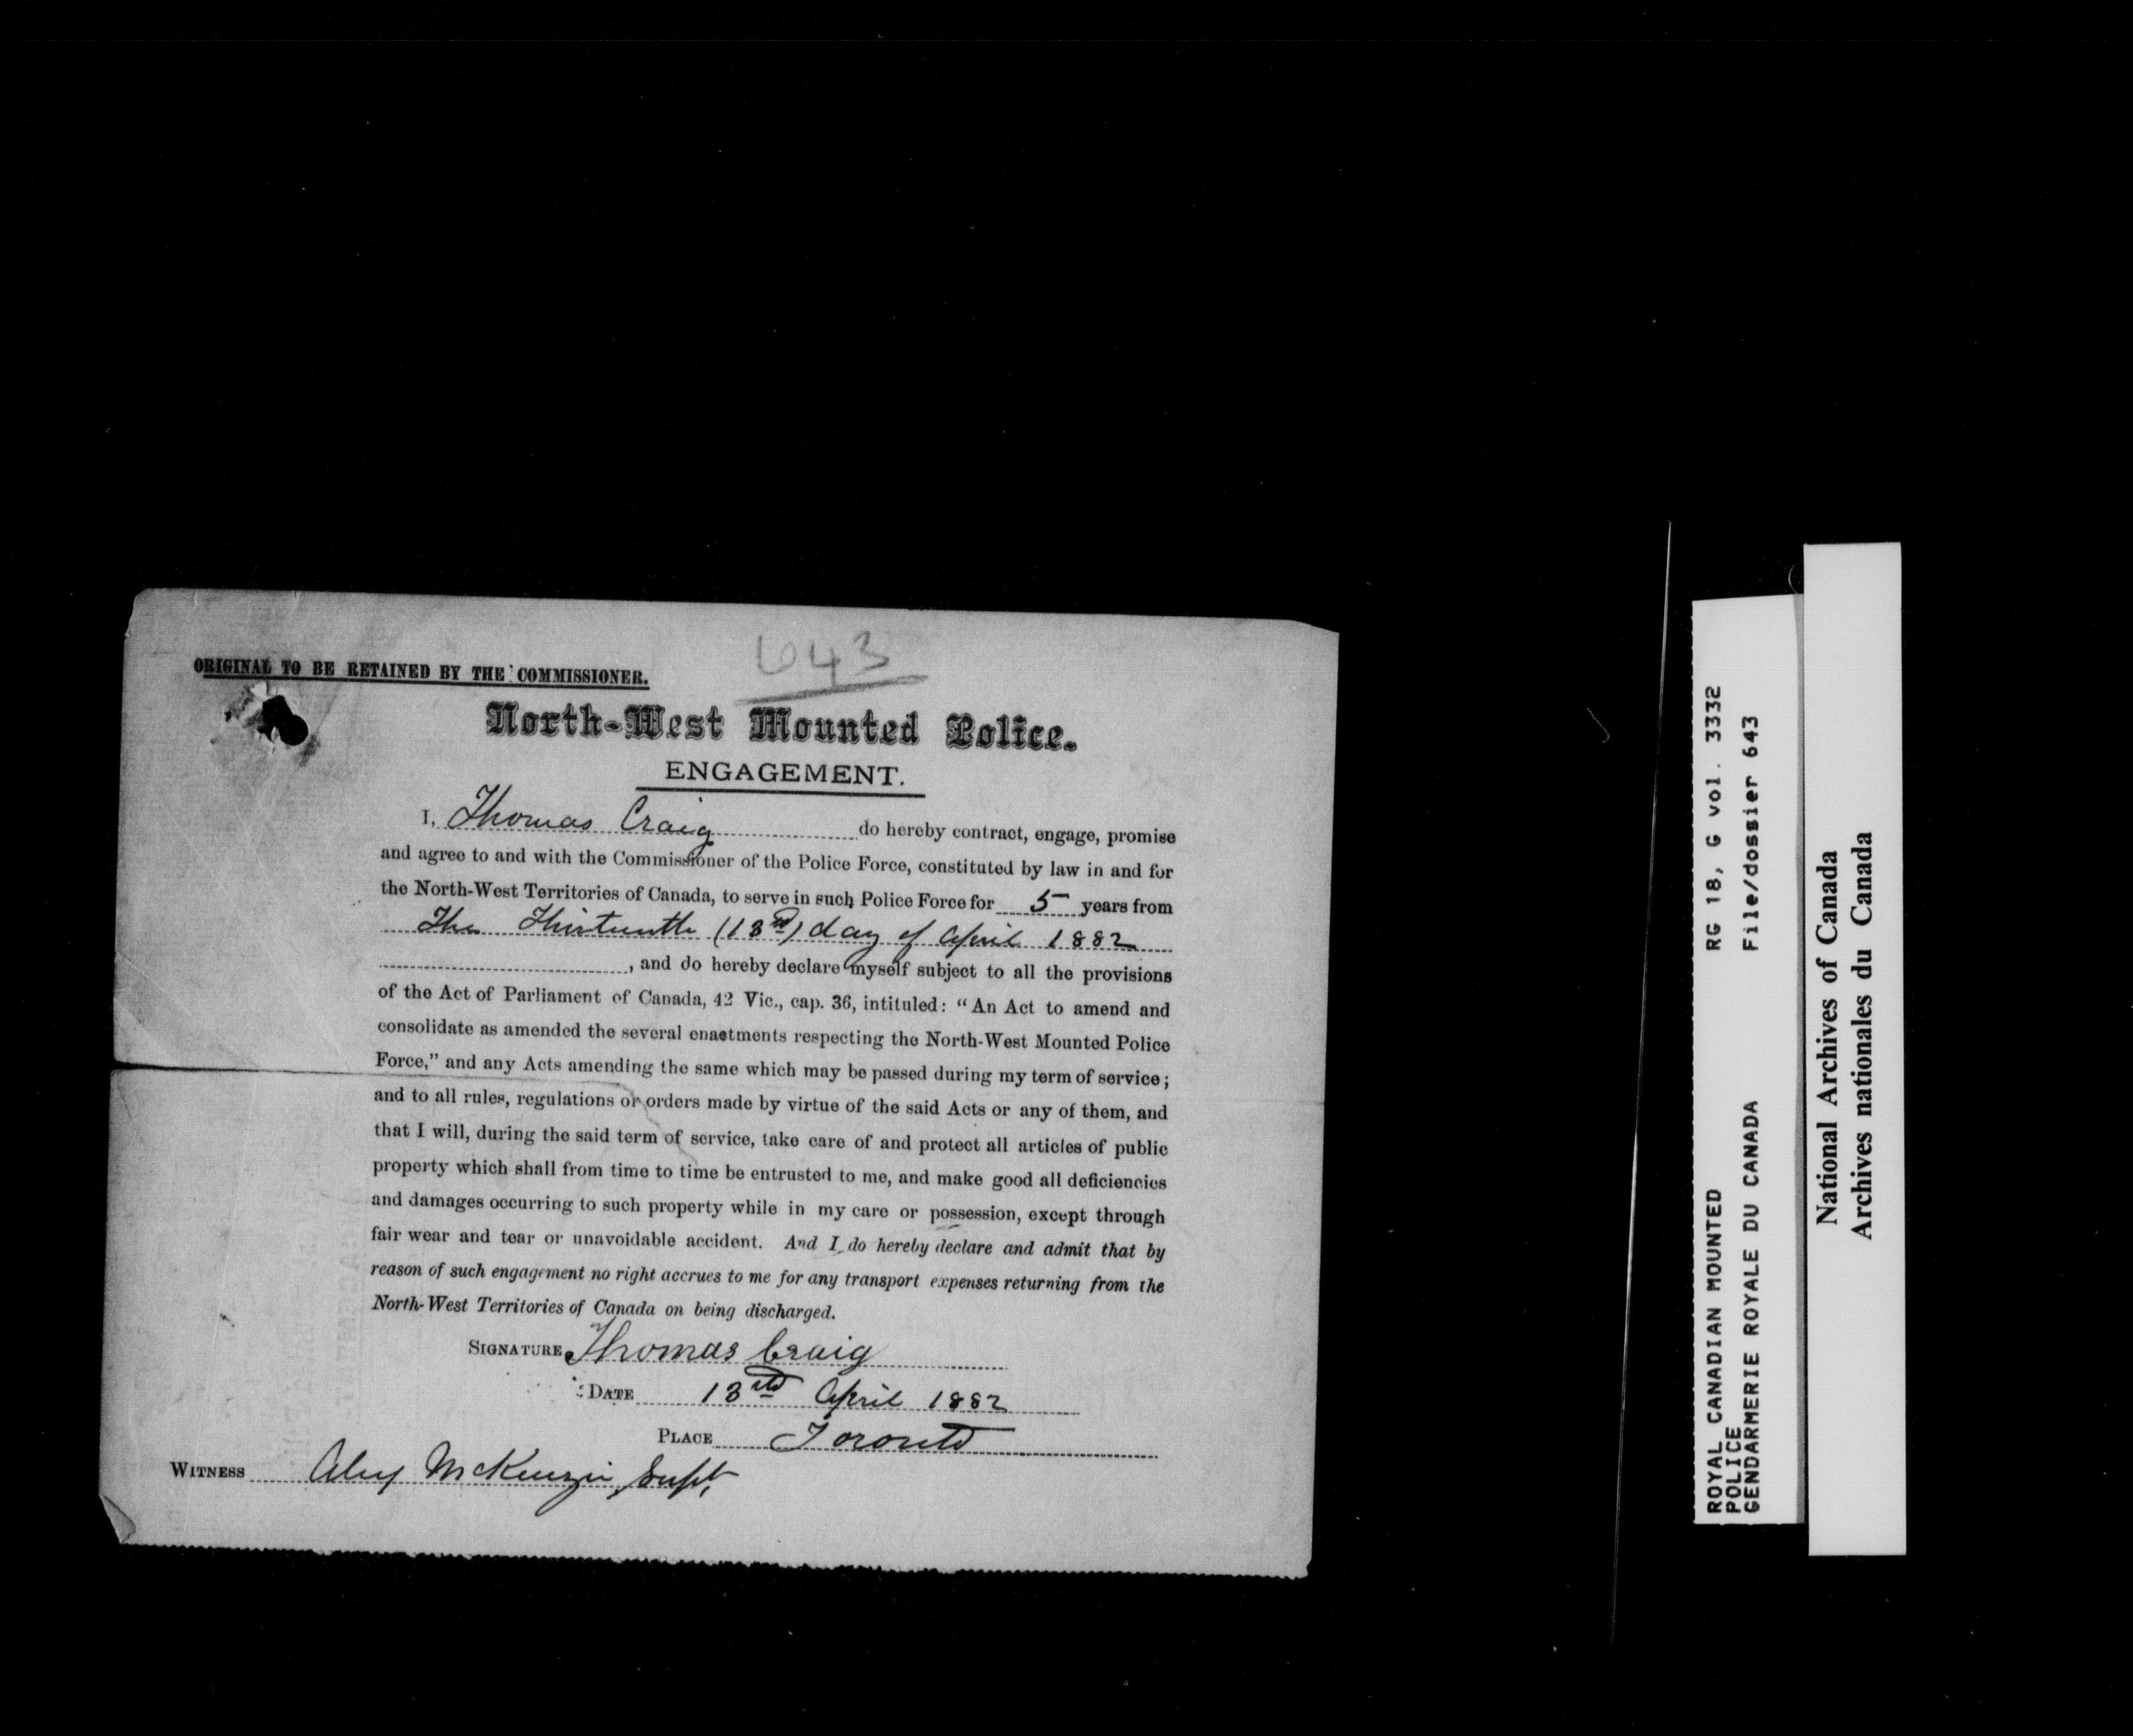 643
ORIGINAL TO BE RETAINED BY THE COMMISSIONER.
North-West Mounted Police.
ENGAGEMENT.
I, Thomas Craig do hereby contract, engage, promise
and agree to and with the Commissioner of the Police Force, constituted by law in and for
the North-West Territories of Canada, to serve in such Police Force for 5 years from
The Thirteenth (13th) day of April 1882
, and do hereby declare myself subject to all the provisions
of the Act of Parliament of Canada, 42 Vic., cap. 36, intituled: "An Act to amend and
consolidate as amended the several enactments respecting the North-West Mounted Police
Force," and any Acts amending the same which may be passed during my term of service;
and to all rules, regulations or orders made by virtue of the said Acts or any of them, and
that I will, during the said term of service, take care of and protect all articles of public
property which shall from time to time be entrusted to me, and make good all deficiencies
and damages occurring to such property while in my care or possession, except through
fair wear and tear or unavoidable accident. And I do hereby declare and admit that by
reason of such engagement no right accrues to me for any transport expenses returning from the
North-West Territories of Canada on being discharged.
SIGNATURE Thomas Craig
DATE 13th April 1882
PLACE Toronto
WITNESS Alex McKenzie, Supt,
ROYAL CANADIAN MOUNTED RG 18, G vol. 3332
POLICE
GENDARMERIE ROYALE DU CANADA File/dossier 643
National Archives of Canada
Archives nationales du Canada